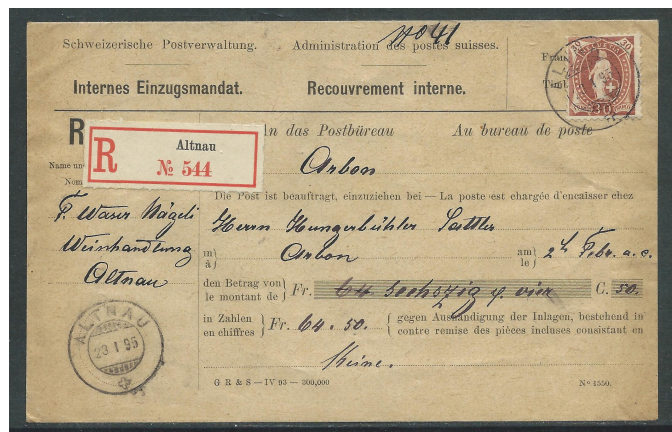 No 41
Schweizerische Postverwaltung. Administration des postes suisses.
Internes Einzugsmandat. Recouvrement interne.
30 30
R
R Altnau
№ 544
An das Postbüreau Au bureau de poste
Arbon
Name un
Nom
Die Post ist beauftragt, einzuziehen bei — La poste est chargée d'encaisser chez
F. Waser Nägeli
Weinhandlung
Altnau
Herrn Hungerbühler Sattler
m à Arbon am le 2t Febr. a.c.
den Betrag von le montant de Fr. 64 Sechzig & vier C. 50.
in Zahlen en chiffres Fr. 64.50. gegen Aushändigung der Inlagen, bestehend in
contre remise des pièces incluses consistant en
Keine.
ALTNAU
23 I 95
G R & S — IV 93 — 300,000 Nº 4550.